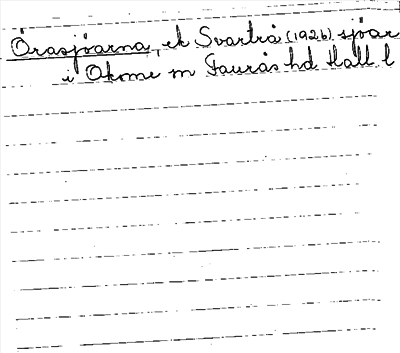 Örasjöarna, ek Svartrå (1926) sjöar
i Okome sn Faurås hd Hall l